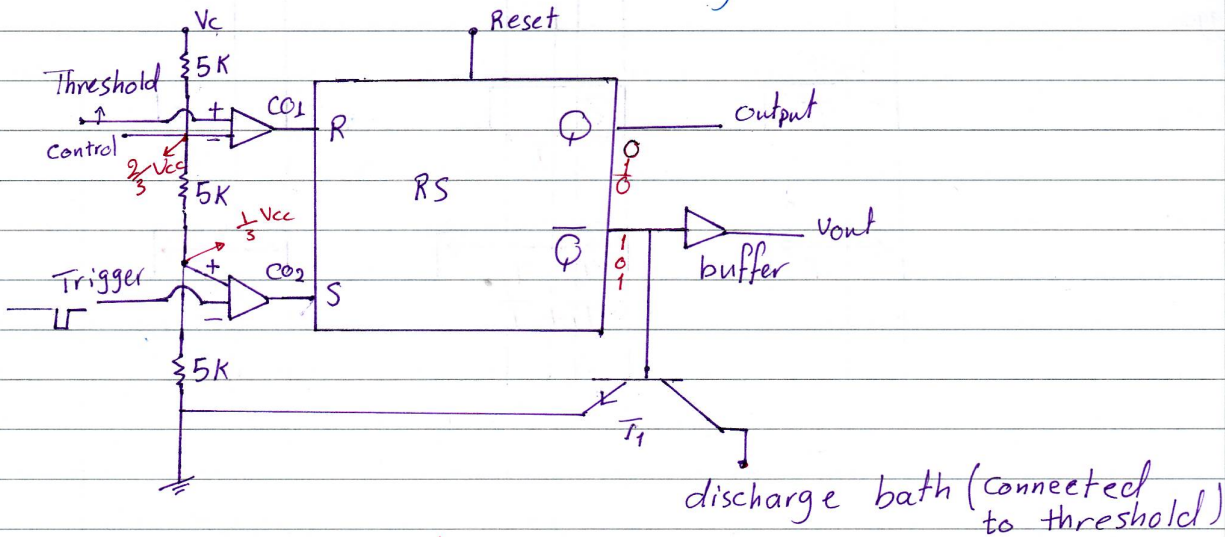 Vc
Reset
5K
Threshold
+
CO1
R
Q
output
Control
-
2/3 Vcc
0
1
0
5K
RS
1/3 Vcc
Q̅
1
0
1
Vout
buffer
Trigger
+
CO2
S
-
5K
T1
discharge bath (connected
to threshold)